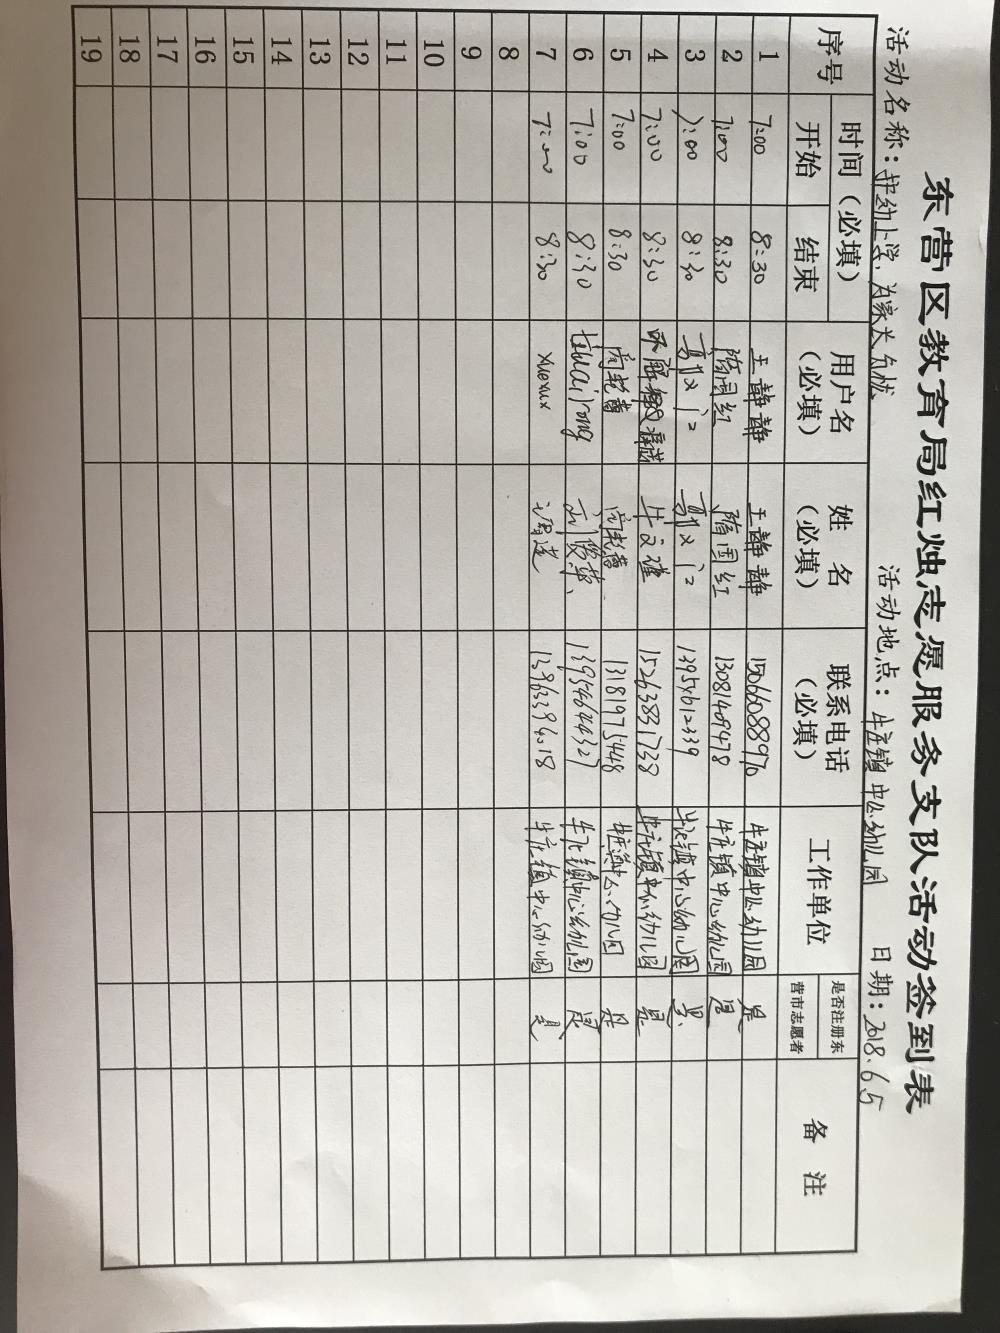 东营区教育局红烛志愿服务支队活动签到表
活动名称：护幼上学，为家长分忧 活动地点：牛庄镇中心幼儿园 日期：2018.6.5
序号 时间（必填） 用户名（必填） 姓名（必填） 联系电话（必填） 工作单位 是否注册东营市志愿者 备注
开始 结束
1 7:00 8:30 王静静 王静静 15066088970 牛庄镇中心幼儿园 是
2 7:00 8:30 隋国红 隋国红 13081409478 牛庄镇中心幼儿园 是
3 7:00 8:30 牛庄镇中心幼儿园 是
4 7:00 8:30 15263831738 牛庄镇中心幼儿园 是
5 7:00 8:30 13181975448 牛庄镇中心幼儿园 是
6 7:00 8:30 13954644327 牛庄镇中心幼儿园 是
7 7:00 8:30 xuexux 牛庄镇中心幼儿园 是
8
9
10
11
12
13
14
15
16
17
18
19